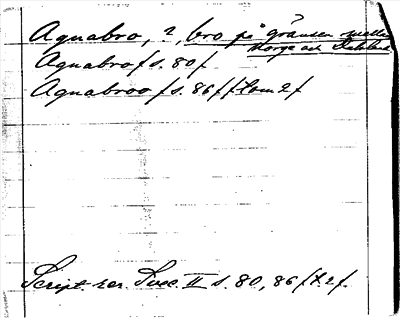 Aquabro, ?, bro på gränsen mellan
Norge och
Aquabro f s. 80 f
Aquabroo f s. 86 f f
Script. rer. Svec. II s. 80, 86 f